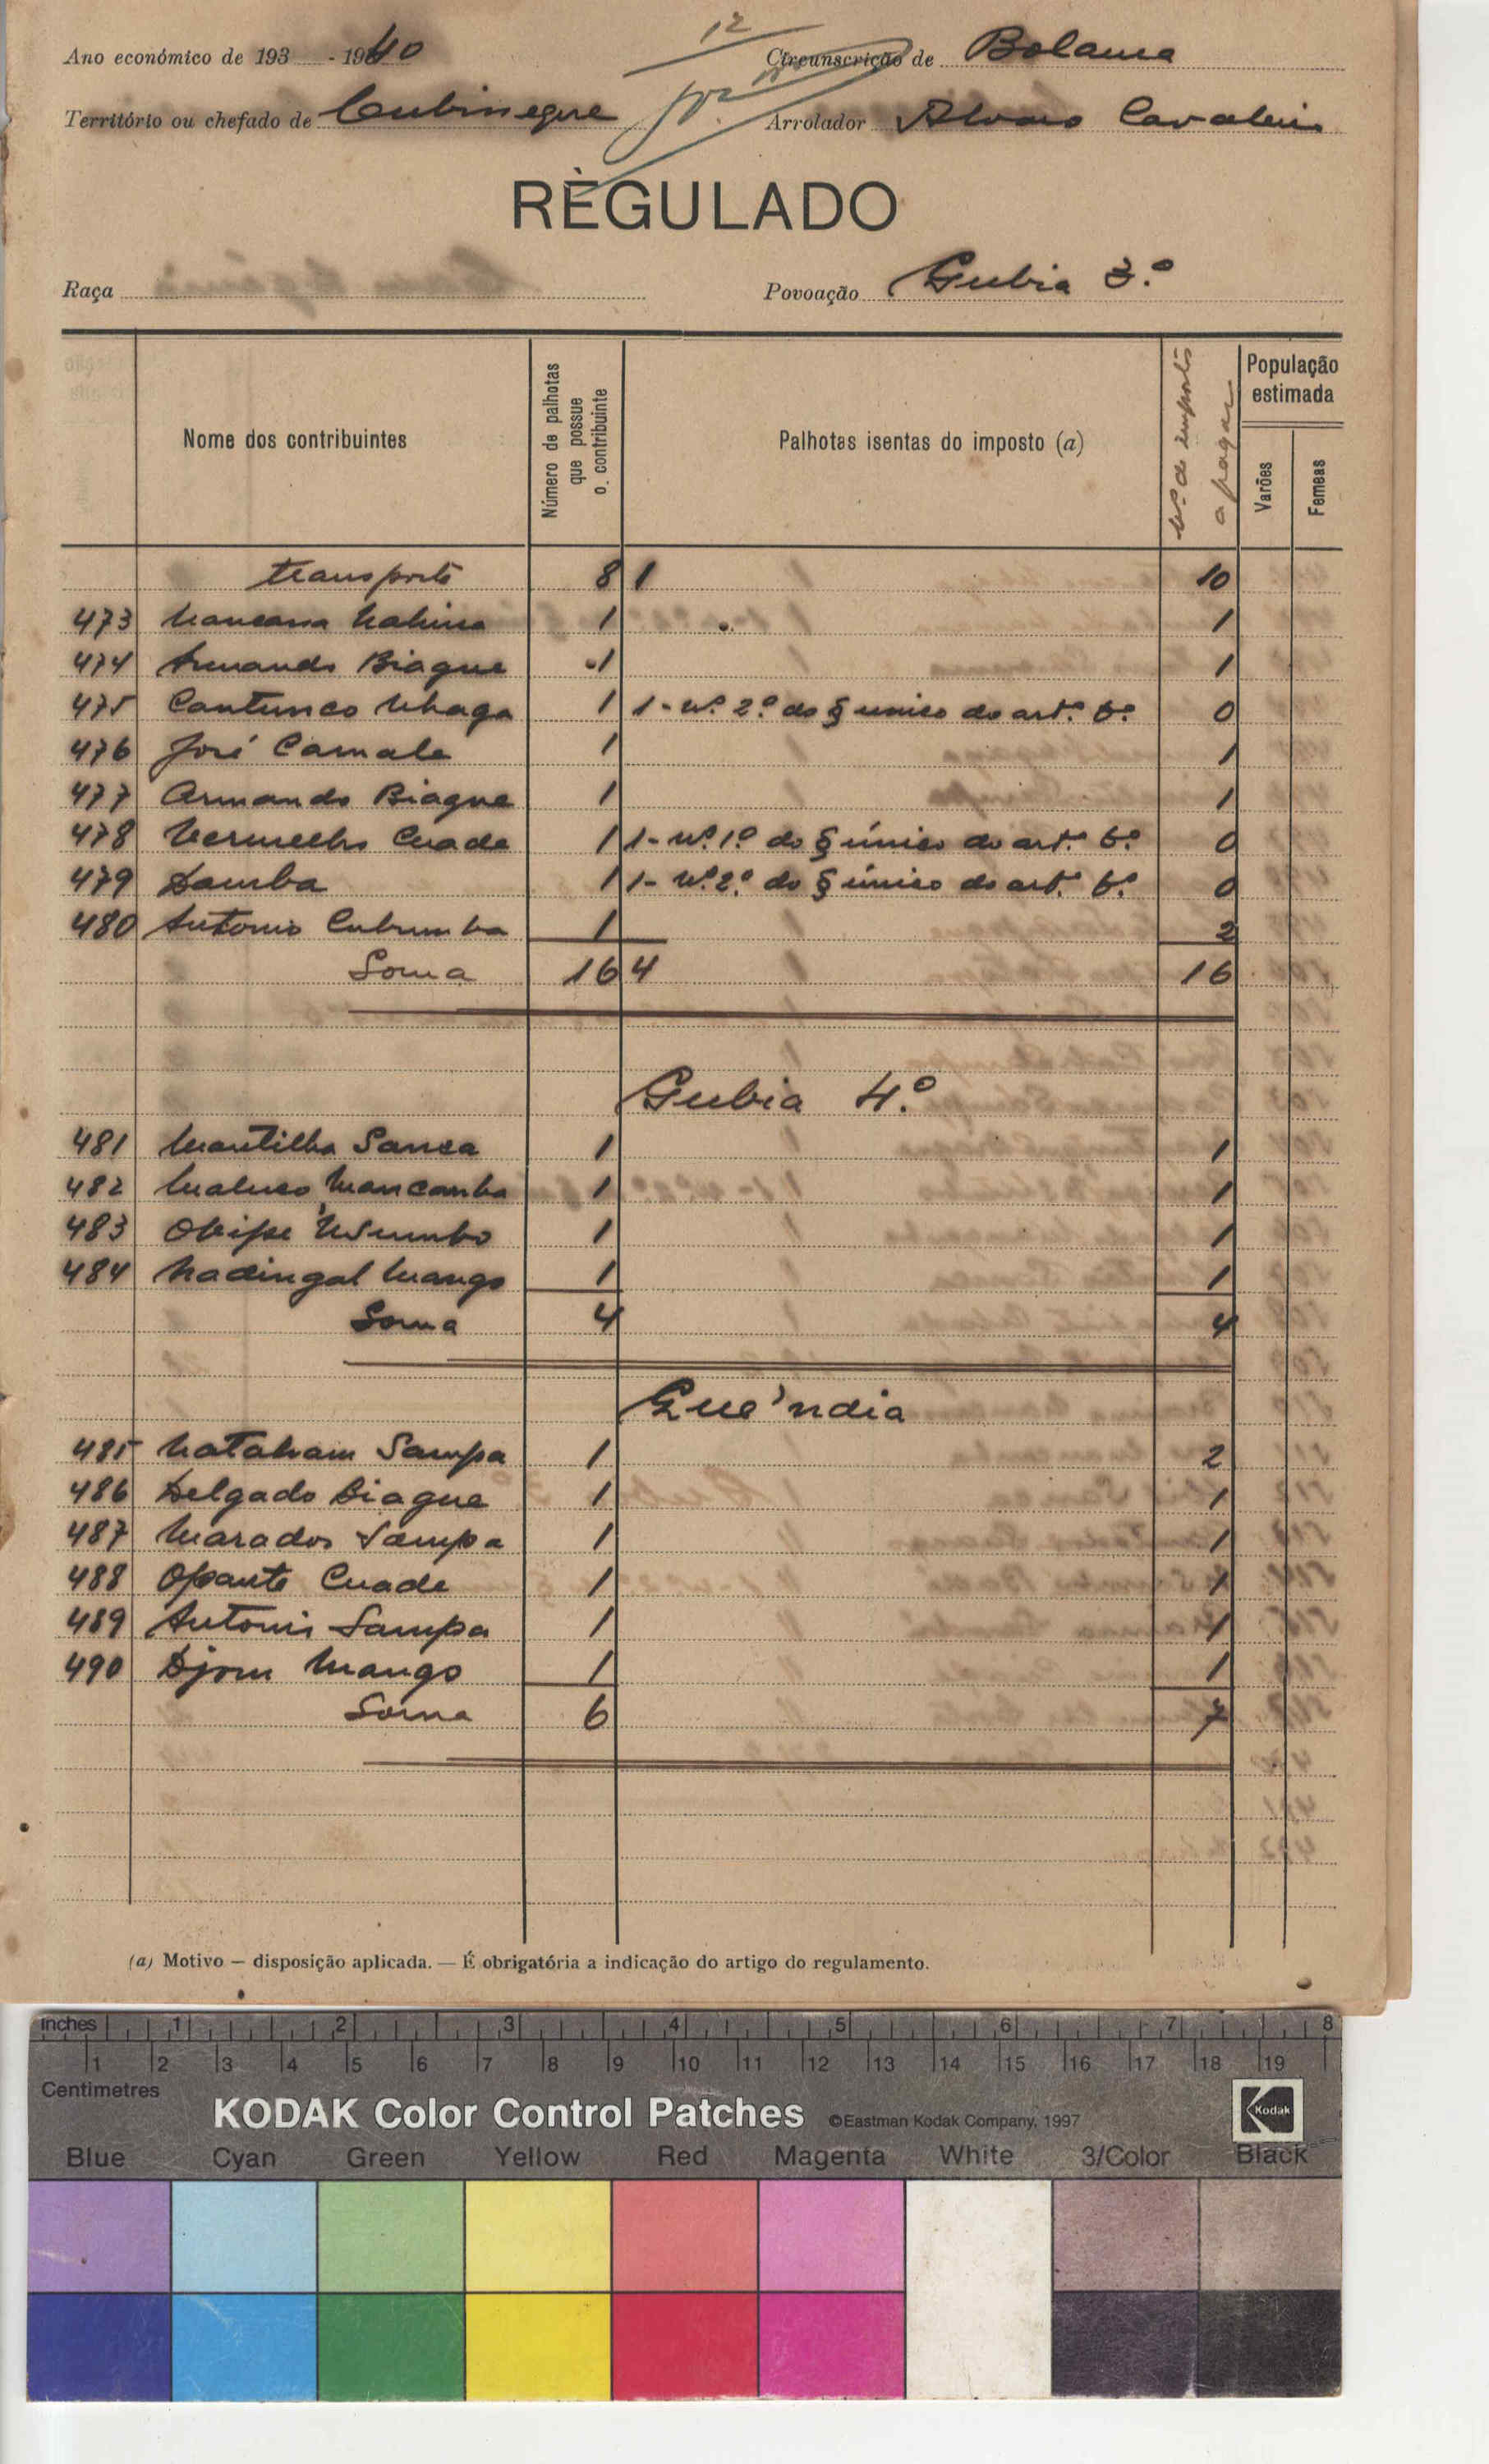 12
Ano económico de 193 - 1940 Circunscrição de Bolama
Território ou chefado de Cubinegue Arrolador Alvaro Cavaleiro
RÈGULADO
Raça Povoação Gubia 3.º
Nome dos contribuintes Número de palhotas que possue o. contribuinte Palhotas isentas do imposto (a) Nº de impostos a pagar População estimada Varões Femeas
Transporte 8 1 10
473 1 1
474 Armando Biague 1 1
475 1 1 - Nº. 2º do § unico do artº. 6º 0
476 José Camale 1 1
477 Armando Biague 1 1
478 Vermelho Cuade 1 1 - nº. 1º do § único do artº. 6º 0
479 Samba 1 1 - Nº. 2º do § único do artº. 6º 0
480 Antonio Cubumba 1 2
Soma 16 4 16
Gubia 4.º
481 Mantilha Sanca 1 1
482 Maluco Mancamba 1 1
483 1 1
484 Nadingal Mango 1 1
Soma 4 4
Gue'ndia
485 Natabam Sampa 1 2
486 Delgado Biague 1 1
487 Marador Sampa 1 1
488 Opante Cuade 1 1
489 Antonio Sampa 1 1
490 Djom Mango 1 1
Soma 6 7
(a) Motivo — disposição aplicada. — É obrigatória a indicação do artigo do regulamento.
inches 1 2 3 4 5 6 7 8
1 2 3 4 5 6 7 8 9 10 11 12 13 14 15 16 17 18 19
Centimetres
KODAK Color Control Patches ©Eastman Kodak Company, 1997 Kodak
Blue Cyan Green Yellow Red Magenta White 3/Color Black